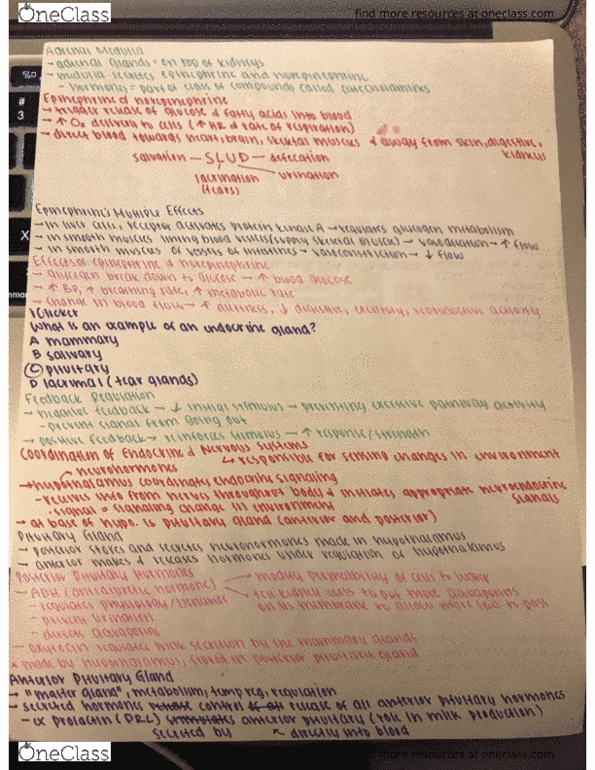 OneClass
find more resources at oneclass.com
Adrenal Medulla
- adrenal glands = on top of kidneys
- medulla secretes epinephrine and norepinephrine
- hormones = part of class of compounds called catecholamines
Epinephrine & norepinephrine
→ trigger release of glucose & fatty acids into blood
→ ↑ O2 delivery to cells (↑ HR & rate of respiration)
→ direct blood towards heart, brain, skeletal muscles & away from skin, digestive, kidneys
salvation — SLUD — defecation
lacrimation urination
(tears)
Epinephrine's Multiple Effects
- in liver cells, receptor activates protein kinase A → regulates glycogen metabolism
- in smooth muscles lining blood vessels (supply skeletal muscle) → vasodilation → ↑ flow
- in smooth muscles of vessels of intestines → vasoconstriction → ↓ flow
Effects of epinephrine & norepinephrine
- glycogen break down to glucose → ↑ blood glucose
- ↑ BP, ↑ breathing rate, ↑ metabolic rate
- change in blood flow → ↑ alertness, ↓ digestive, excretory, reproductive activity
iClicker
What is an example of an endocrine gland?
A mammary
B salivary
C pituitary
D lacrimal (tear glands)
Feedback Regulation
- negative feedback → ↓ initial stimulus → preventing excessive pathway activity
- prevent signal from going out
→ positive feedback → reinforces stimulus → ↑ response/strength
Coordination of Endocrine & Nervous Systems
↳ responsible for sensing changes in environment
neurohormones
→ hypothalamus coordinates endocrine signaling
- receives info from nerves throughout body & initiates appropriate neuroendocrine signals
· signal = signaling change in environment
→ at base of hypo. is pituitary gland (anterior and posterior)
Pituitary Gland
- posterior stores and secretes neurohormones made in hypothalamus
- anterior makes & releases hormones under regulation of hypothalamus
Posterior Pituitary Hormones
- ADH (antidiuretic hormone)
modify permeability of cells to water
tell kidney cells to put more aquaporins
on its membrane to allow more H2O to pass
- regulates physiology/behavior
- prevent urination
- directs aquaporins
- oxytocin regulates milk secretion by the mammary glands
* made by hypothalamus, stored in posterior pituitary gland
Anterior Pituitary Gland
- "master gland", metabolism, temp reg, regulation
- secreted hormones control release of all anterior pituitary hormones
- ex prolactin (PRL) anterior pituitary (role in milk production)
secreted by directly into blood
OneClass
find more resources at oneclass.com